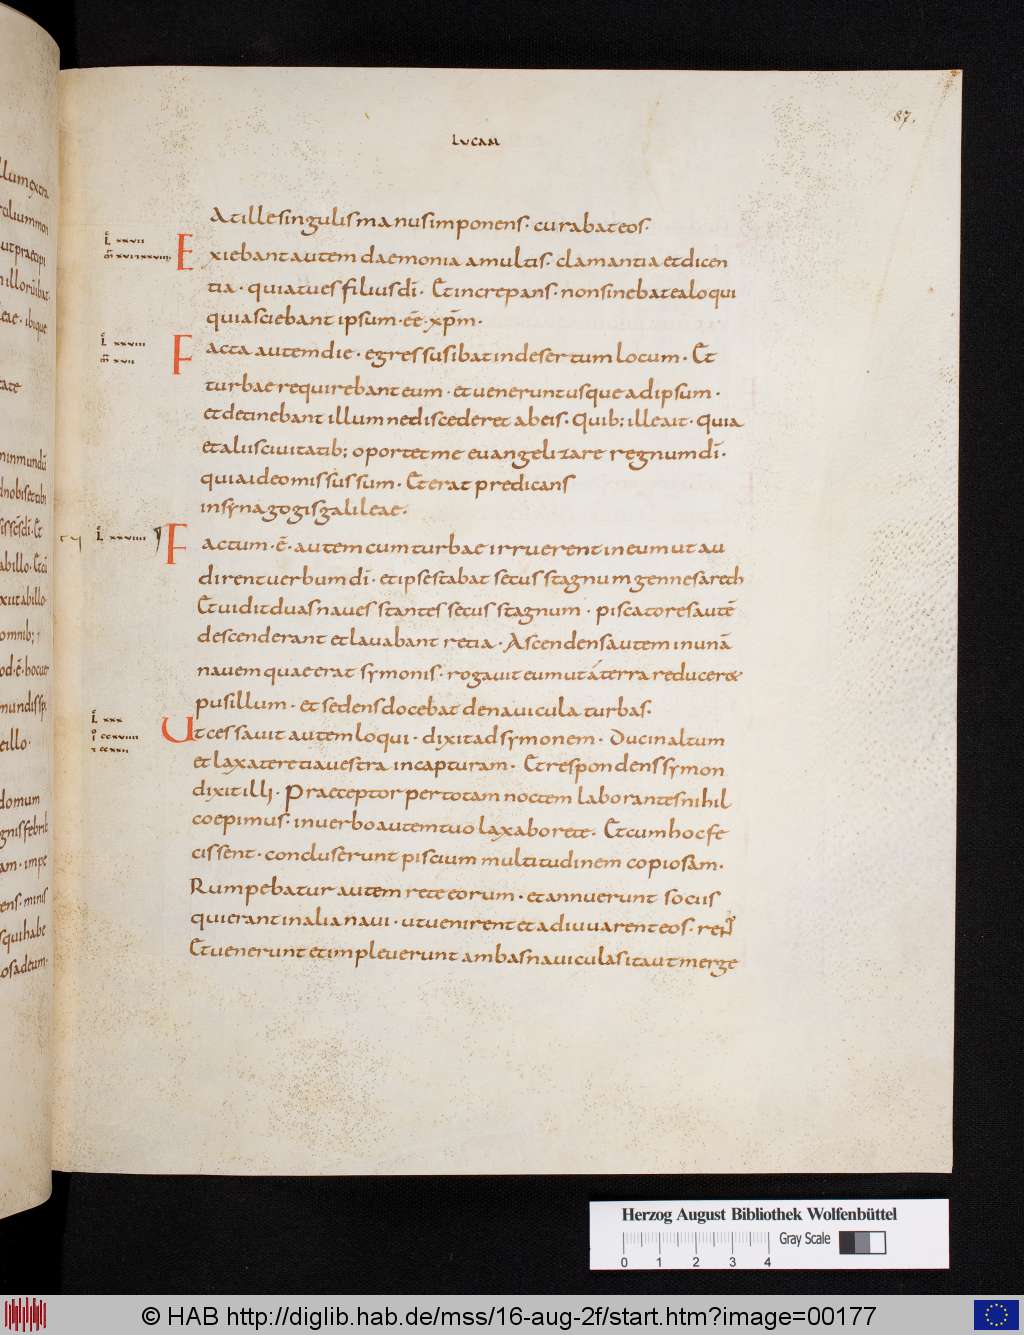 LUCAM
87.
At ille singulis manus imponens· curabat eos·
Exiebant autem daemonia a multis· clamantia et dicen
tia· quia tu es filius dī· Et increpans· non sinebat ea loqui
quia sciebant ipsum· eē· xp̄m·
Facta autem die· egressus ibat in desertum locum· Et
turbae requirebant eum· et uenerunt usque ad ipsum·
et detinebant illum ne discederet ab eis· Quib; ille ait· Quia
et aliis ciuitatib; oportet me euangelizare regnum dī·
quia ideo missus sum· Et erat predicans
in synagogis galileae·
Factum· ē· autem cum turbae irruerent in eum ut au
dirent uerbum dī· et ipse stabat secus stagnum gennesareth
Et uidit duas naues stantes secus stagnum· piscatores autē
descenderant et lauabant retia· Ascendens autem in unā
nauem quae erat symonis· rogauit eum ut a terra reducere
pusillum· et sedens docebat de nauicula turbas·
Ut cessauit autem loqui· dixit ad symonem· Duc in altum
et laxate retia uestra in capturam· Et respondens symon
dixit illi· Praeceptor per totam noctem laborantes nihil
coepimus· in uerbo autem tuo laxabo rete· Et cum hoc fe
cissent· concluserunt piscium multitudinem copiosam·
Rumpebatur autem rete eorum· et annuerunt sociis
qui erant in alia naui· ut uenirent et adiuuarent eos·
Et uenerunt et impleuerunt ambas nauiculas ita ut merge
L xxvii
L xxviii
m xvii
L xxviiii
L xxx
Herzog August Bibliothek Wolfenbüttel
Gray Scale
0 1 2 3 4
© HAB http://diglib.hab.de/mss/16-aug-2f/start.htm?image=00177